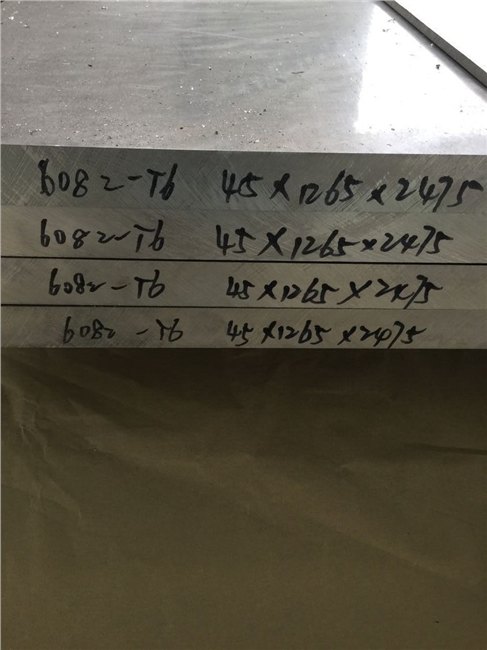 6082-T6 45×1265×2475
6082-T6 45×1265×2475
6082-T6 45×1265×2475
6082-T6 45×1265×2475